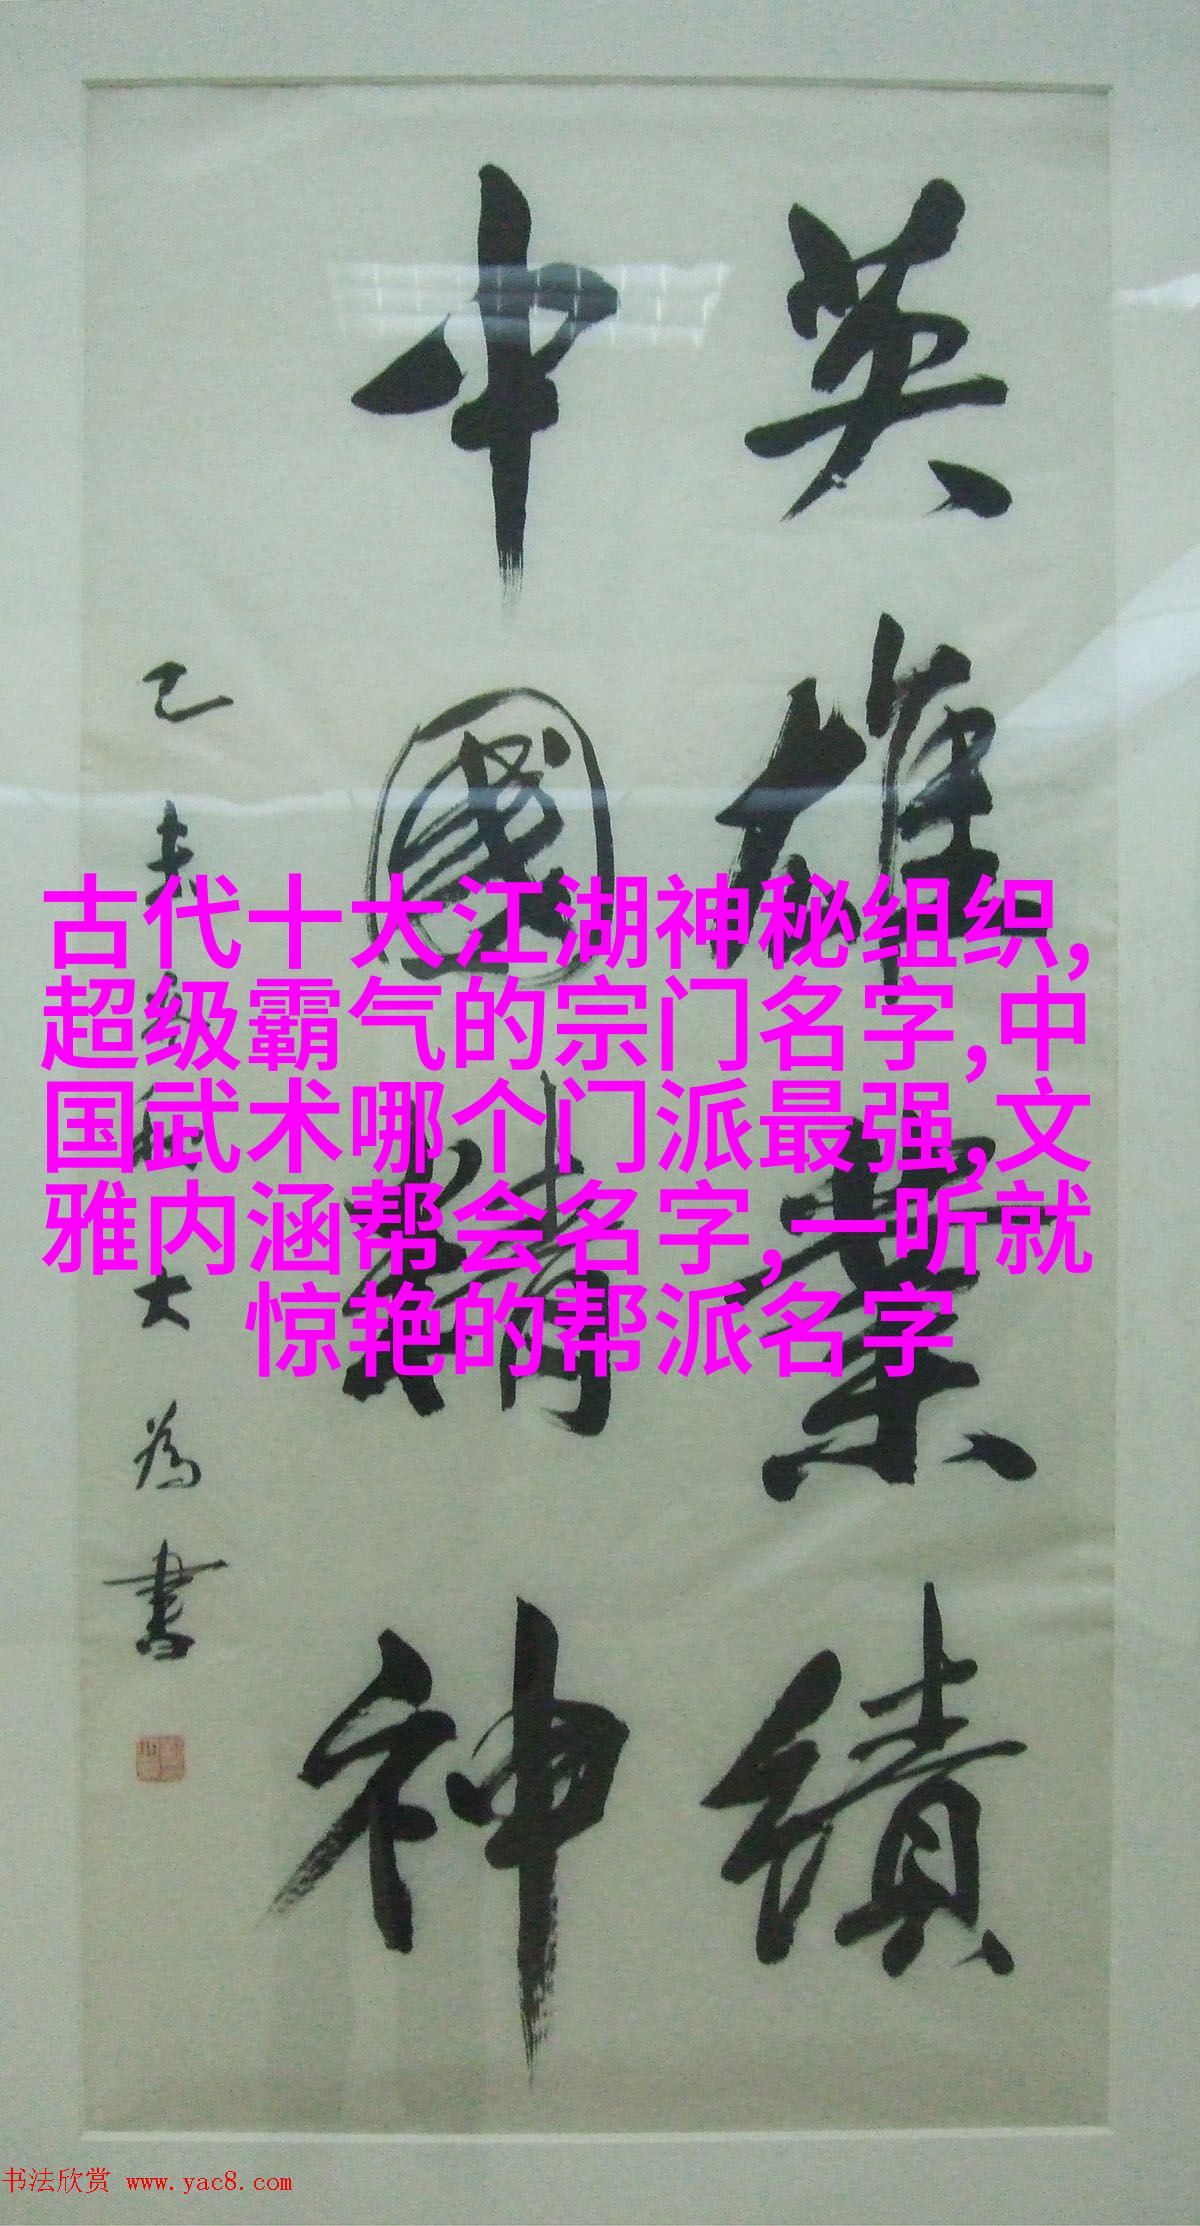 英雄業績
中國精神
乙未
大為書
古代十大江湖神秘组织,
超级霸气的宗门名字,中
国武术哪个门派最强,文
雅内涵帮会名字,一听就
惊艳的帮派名字
书法欣赏 www.yac8.com